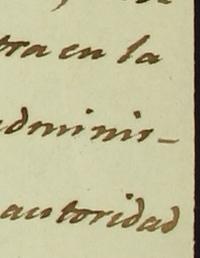 tra en la
adminis-
autoridad